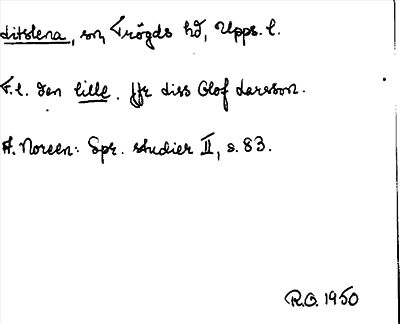 Litslena, sn, Trögds hd, Upps. l.
F.l. den lille. Jfr diss Olof Larsson.
A. Noreen: Spr. studier II, s. 83.
R.O. 1950